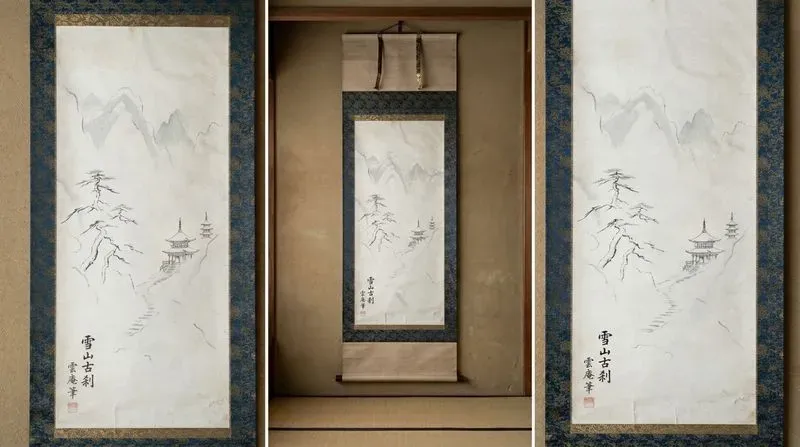 雪山古刹
雲庵筆
雪山古刹
雲庵筆
雪山古刹
雲庵筆